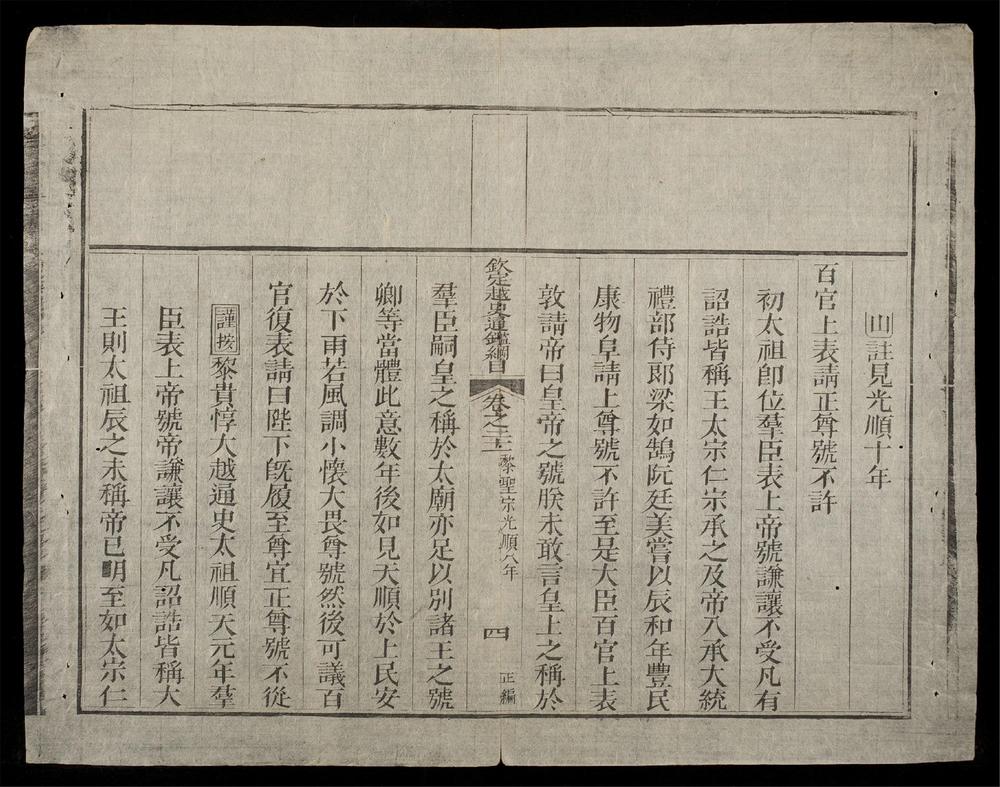 山註見光順十年
百官上表請正尊號不許
初太祖卽位羣臣表上帝號謙讓不受凡有
詔誥皆稱王太宗仁宗承之及帝入承大統
禮部侍郎梁如鵠阮廷美嘗以辰和年豐民
康物阜請上尊號不許至是大臣百官上表
敦請帝曰皇帝之號朕未敢言皇上之稱於
欽定越史通鑑綱目 卷之二十 黎聖宗光順八年 四 正編
羣臣嗣皇之稱於太廟亦足以別諸王之號
卿等當體此意數年後如見天順於上民安
於下雨若風調小懷大畏尊號然後可議百
官復表請曰陛下旣履至尊宜正尊號不從
謹按黎貴惇大越通史太祖順天元年羣
臣表上帝號帝謙讓不受凡詔誥皆稱大
王則太祖辰之未稱帝已明至如太宗仁